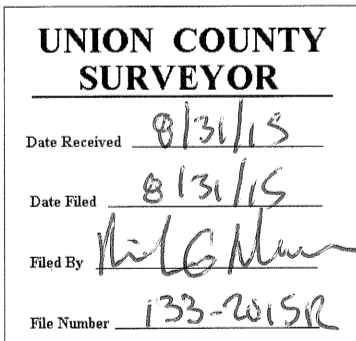 UNION COUNTY
SURVEYOR
Date Received 8/31/15
Date Filed 8/31/15
Filed By
File Number 133-2015R